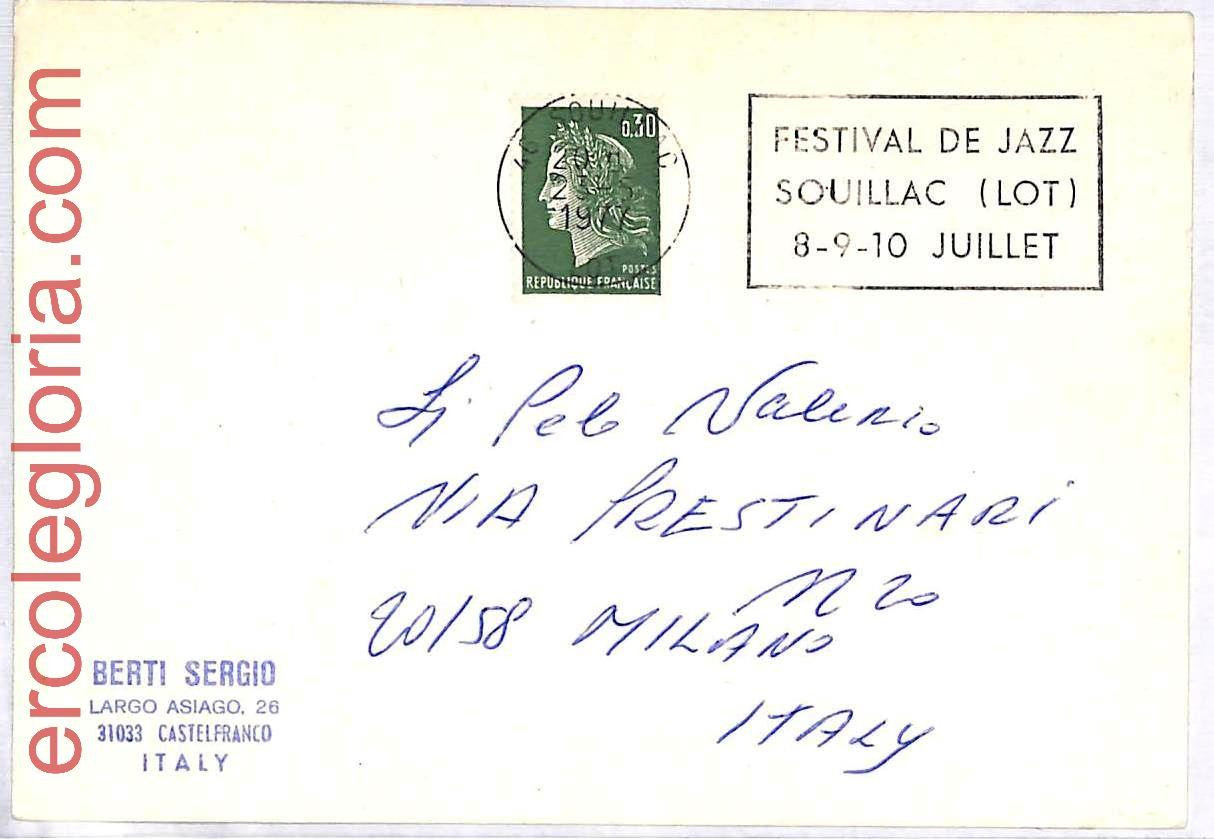 ercolegloria.com
0.30
POSTES
REPUBLIQUE FRANÇAISE
SOUILLAC
20 H
1977
FESTIVAL DE JAZZ
SOUILLAC (LOT)
8-9-10 JUILLET
Valerio
VIA PRESTINARI
N 20
20158 MILANO
ITALY
BERTI SERGIO
LARGO ASIAGO, 26
31033 CASTELFRANCO
ITALY